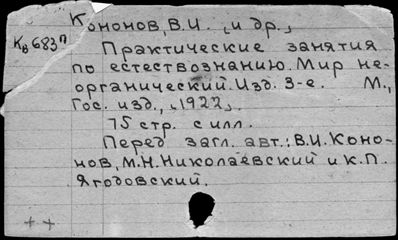 Кононов, В.И. [и др.]
Кв 683п
Практические занятия
по естествознанию. Мир не-
органический. Изд. 3-е. М.,
Гос. изд., [1922].
75 стр. с илл.
Перед загл. авт.: В.И. Коно-
нов, М.Н. Николаевский и К.П.
Ягодовский.
++